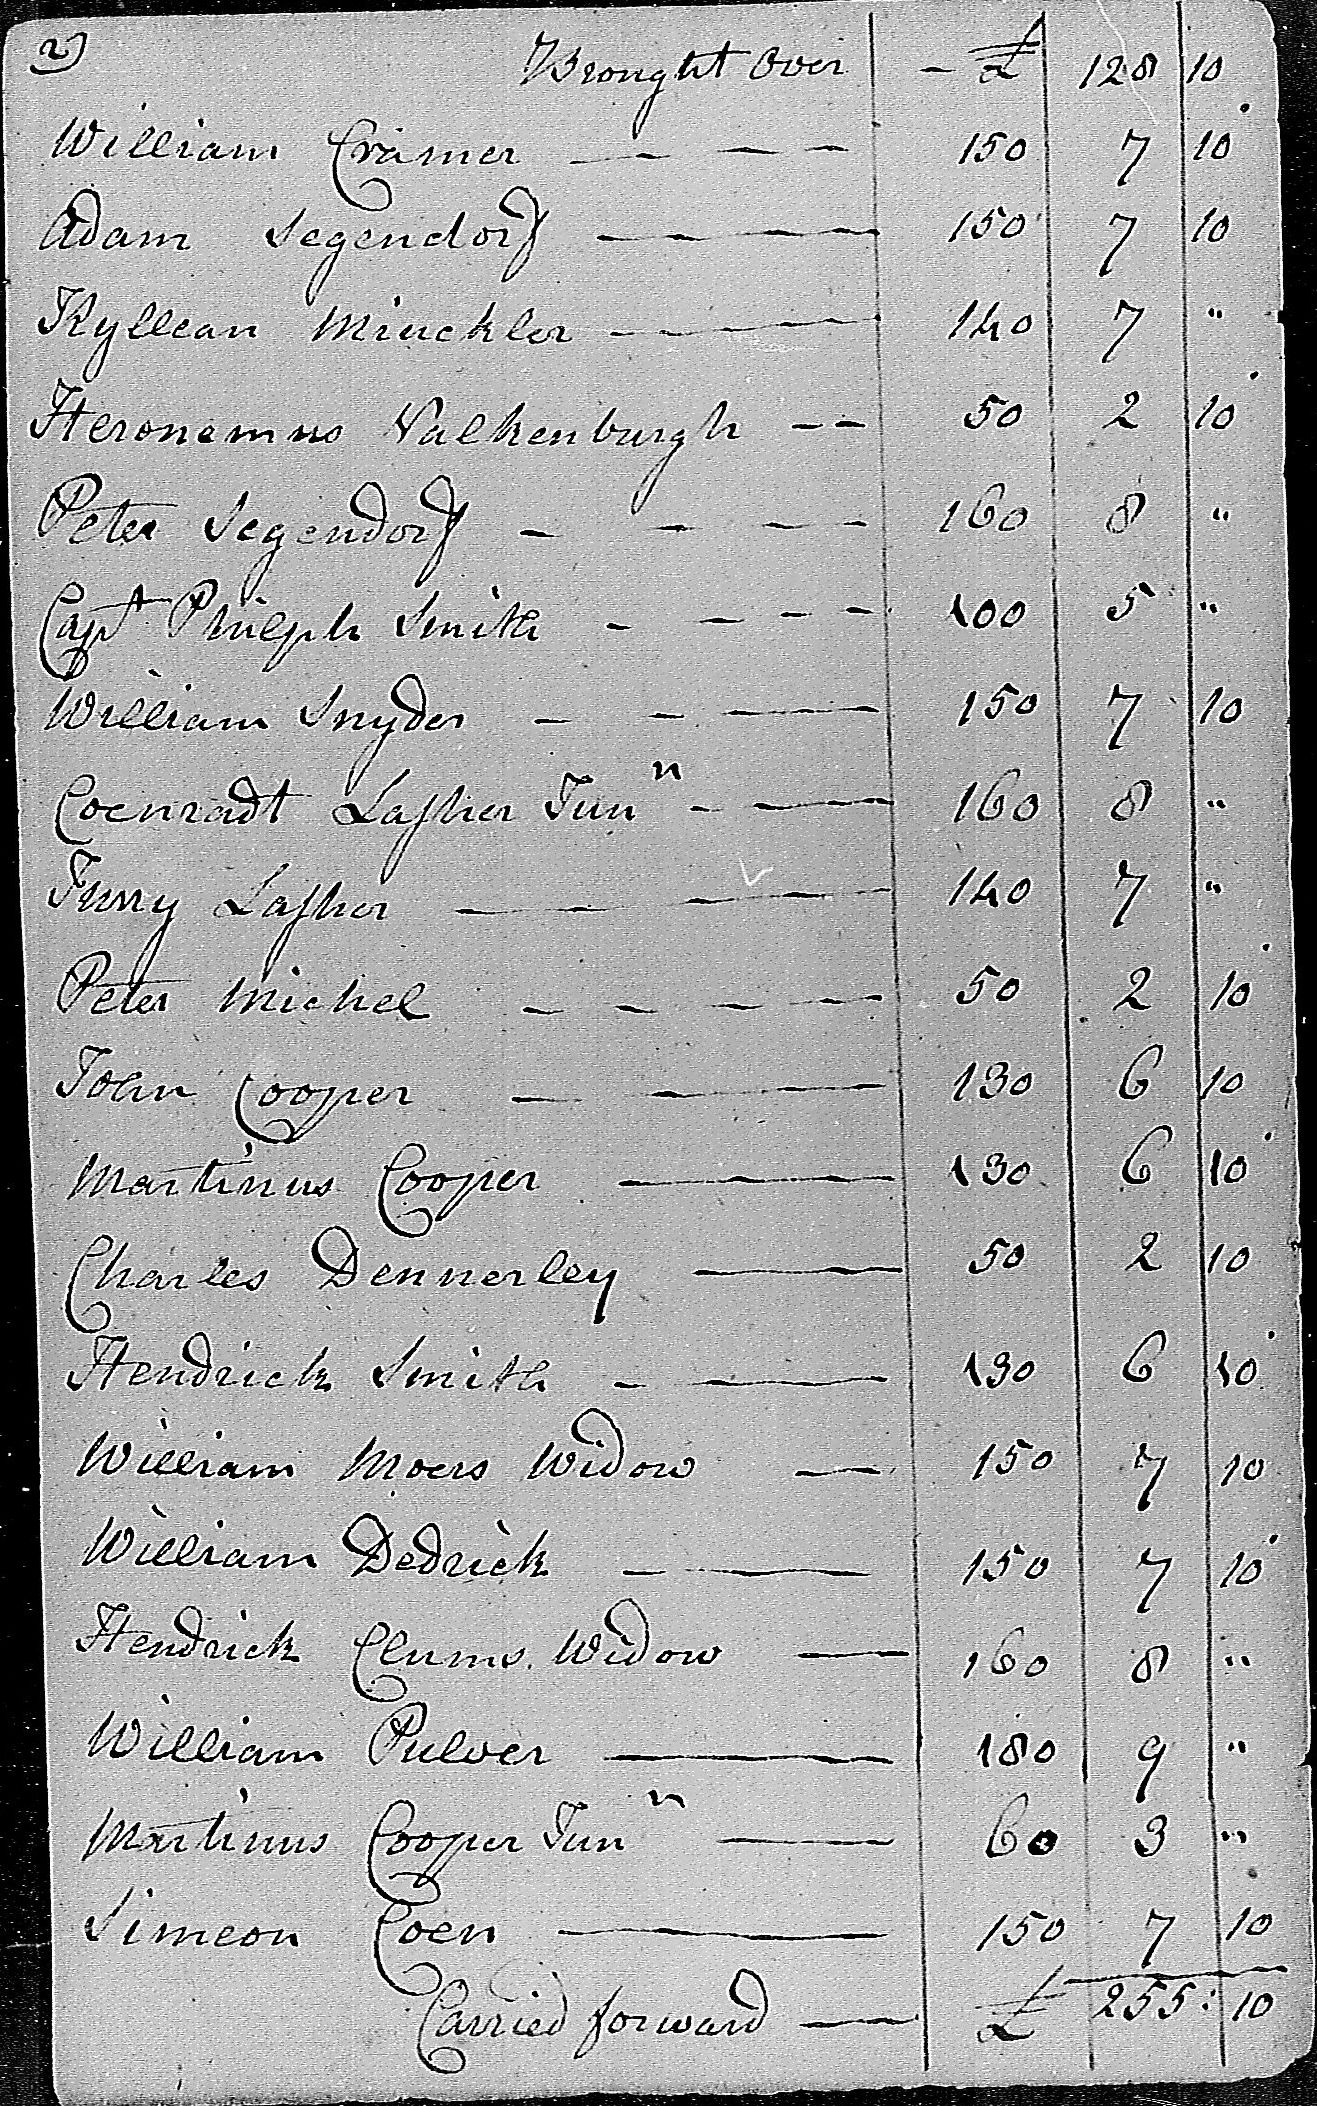 2)
Brought Over — £ 128 10
William Cramer — — — 150 7 10
Adam Segendorf — — — 150 7 10
Kyllean Minckler — — — 140 7 "
Heronemus Valkenburgh — — 50 2 10
Peter Segendorf — — — — 160 8 "
Capt Philiph Smith — — — — 100 5 "
William Snyder — — — 150 7 10
Coenradt Lasher Junr — — 160 8 "
Jurry Lasher — — — — 140 7 "
Peter Michel — — — — 50 2 10
John Cooper — — — 130 6 10
Martinus Cooper — 130 6 10
Charles Dennerley — 50 2 10
Hendrick Smith — — 130 6 10
William Moers Widow — 150 7 10
William Dedrick — — 150 7 10
Hendrick Clums Widow — 160 8 "
William Pulver — 180 9 "
Martinus Cooper Junr — 60 3 "
Simeon Coen — 150 7 10
Carried forward — £ 255: 10